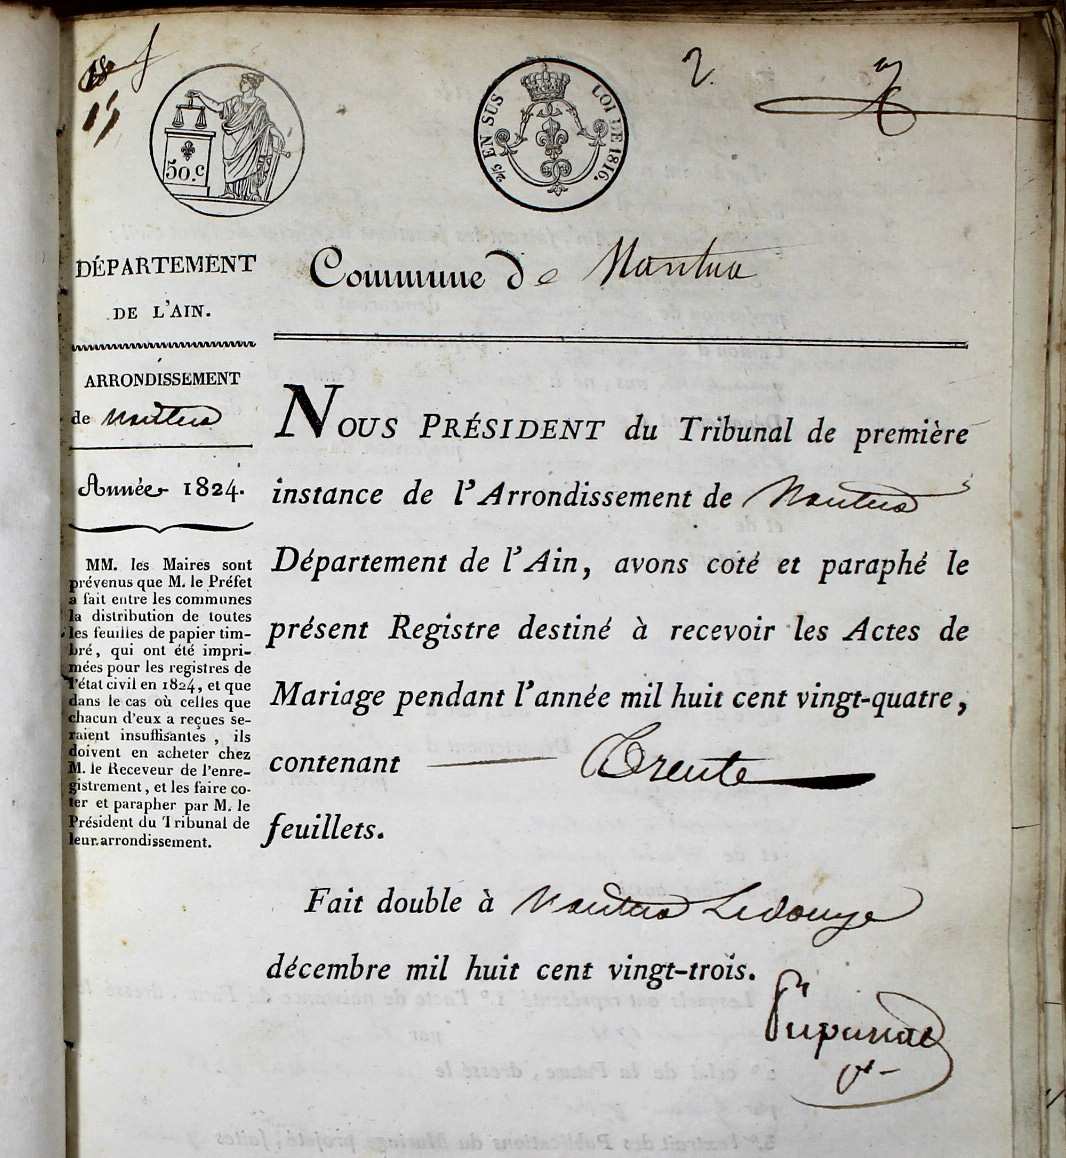 50.c
2/5 EN SUS LOI DE 1816.
2.
DÉPARTEMENT
DE L'AIN.
ARRONDISSEMENT
de Nantua
Année 1824.
MM. les Maires sont
prévenus que M. le Préfet
a fait entre les communes
la distribution de toutes
les feuilles de papier tim-
bré, qui ont été impri-
mées pour les registres de
l'état civil en 1824, et que
dans le cas où celles que
chacun d'eux a reçues se-
raient insuffisantes, ils
doivent en acheter chez
M. le Receveur de l'enre-
gistrement, et les faire co-
ter et parapher par M. le
Président du Tribunal de
leur arrondissement.
Commune de Nantua
NOUS PRÉSIDENT du Tribunal de première
instance de l'Arrondissement de Nantua
Département de l'Ain, avons coté et paraphé le
présent Registre destiné à recevoir les Actes de
Mariage pendant l'année mil huit cent vingt-quatre,
contenant Trente
feuillets.
Fait double à Nantua Le douze
décembre mil huit cent vingt-trois.